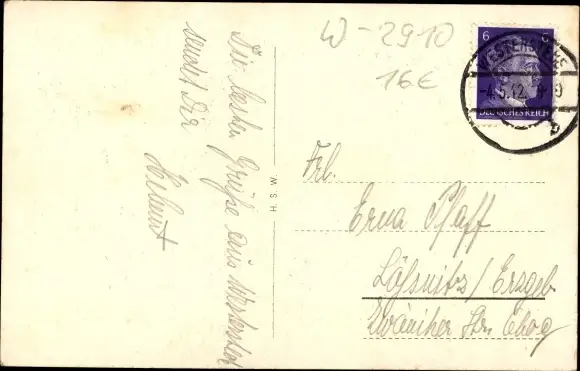 Die besten Grüße aus Westerland
sendet Dir
Helmut
W-2910
16€
6 6
WESTERLAND
-4.5.42.
b
DEUTSCHES REICH
H. S. W.
Frl.
Erna Pfaff
Lößnitz/Erzgeb.
Zwönitzer Str.